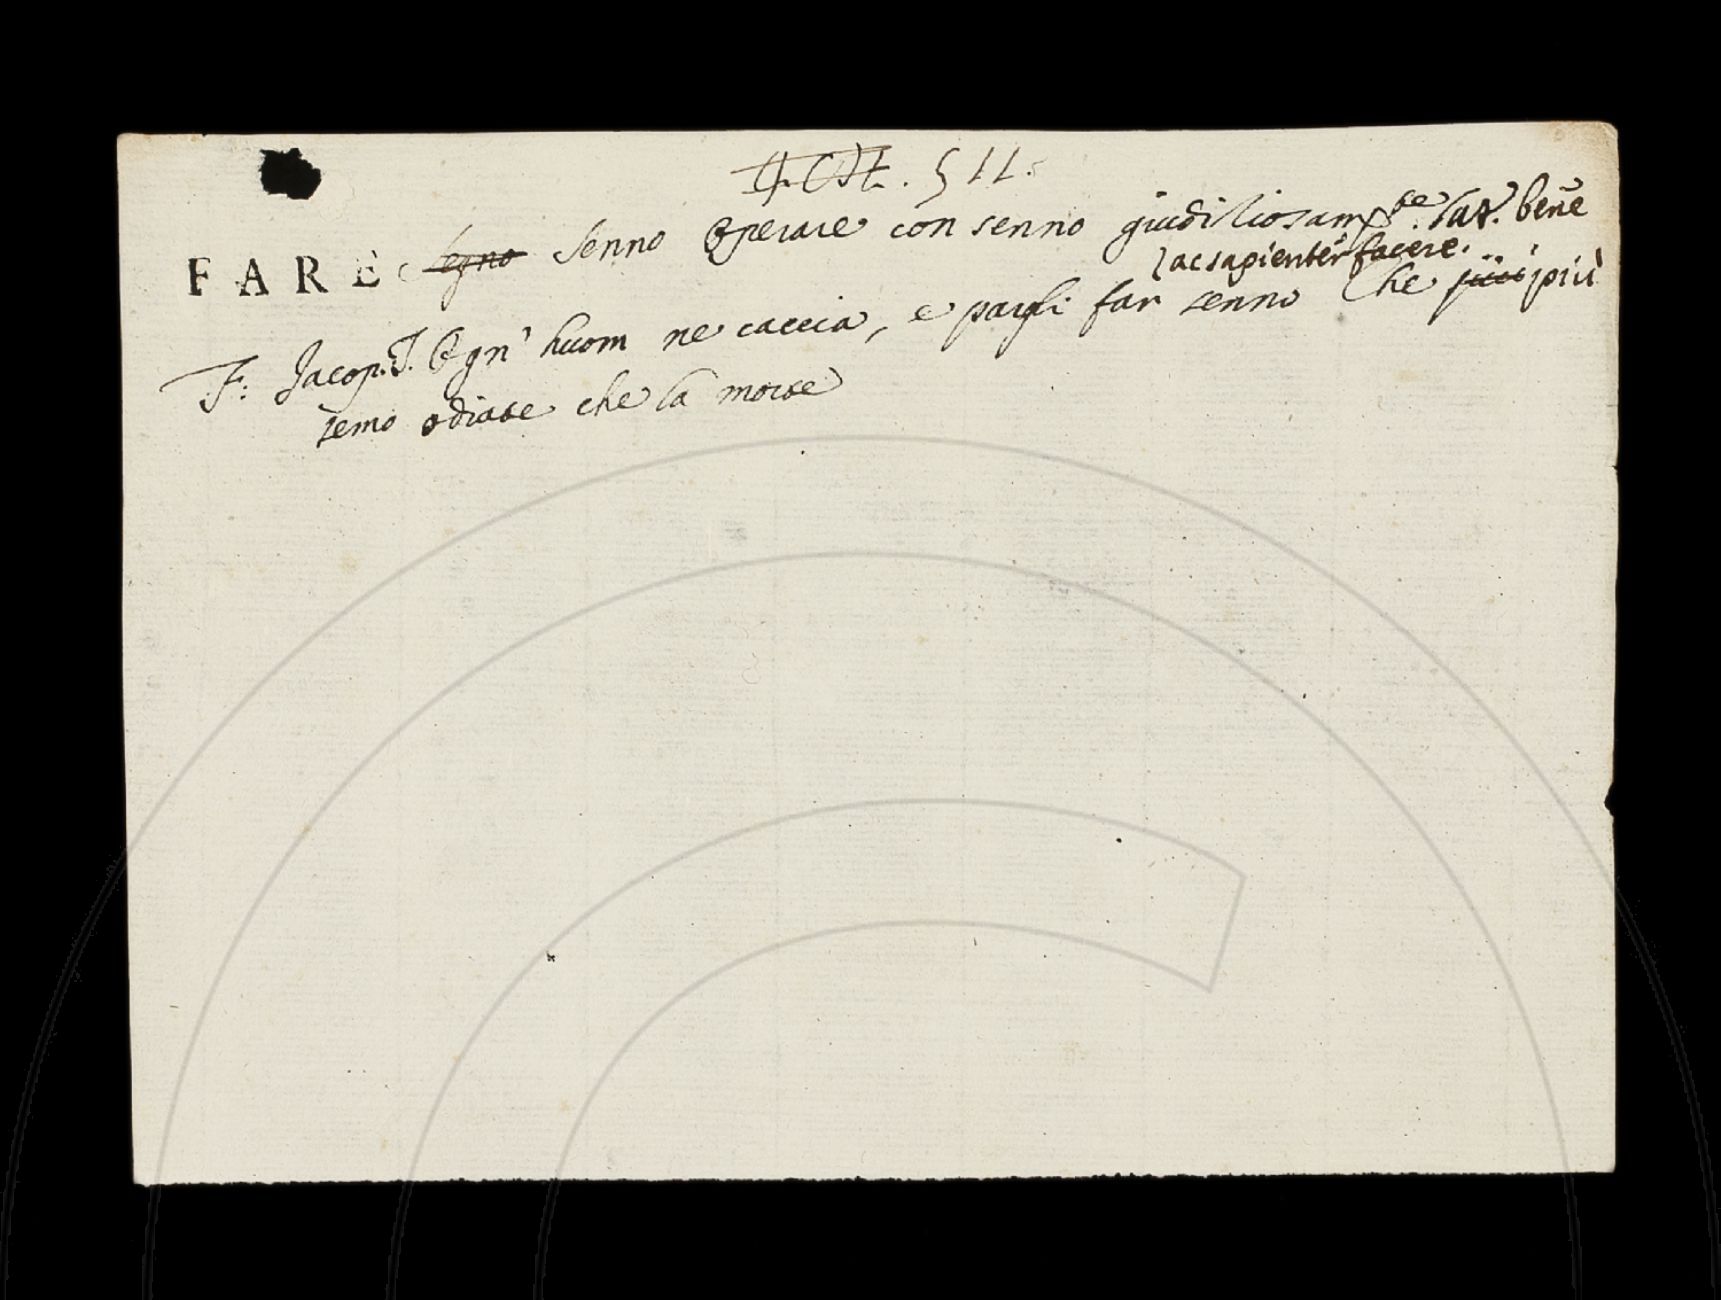 § 11.
FARE segno Senno Operare con senno giudiziosamte. Lat. bene
ac sapienter facere.
F: Jacop. T. Ogn' huom ne caccia, e pargli far senno Che più
temo odiate che la morte